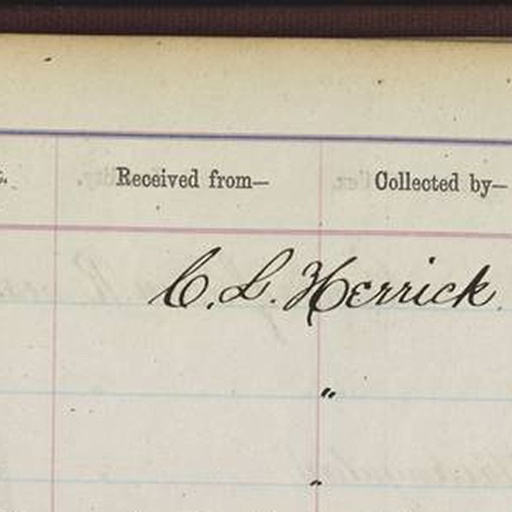 Received from— Collected by—
C. L. Herrick.
"
"